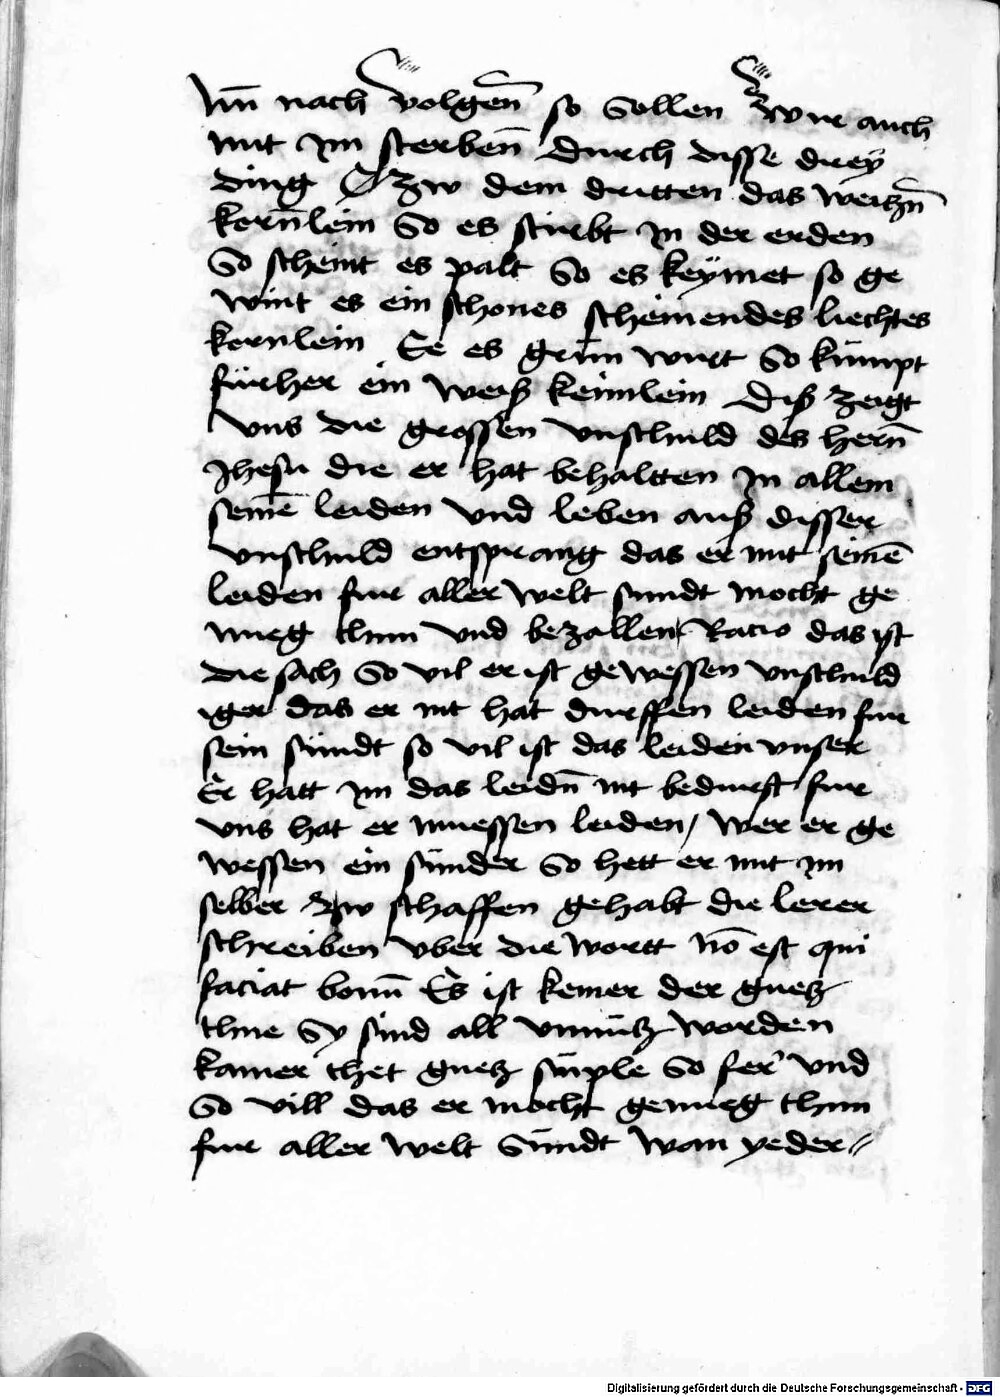 im̄ nach volgen̄ so sollen wir auch
mit im sterben̄ durch disse drey
ding Zw dem dritten das weitzn̄
korn̄lein So es stirbt in der erden
So scheint es palt So es keymet so ge
wint es ein schones scheinendes liechtes
kornlein Ee es grün wirt So kümpt
fürher ein weiß keimlein Diß zeigt
vns die grossen vnschuld des hern̄
Jhesu die er hat behaltten in allem
seinē leiden vnd leben auß disser
vnschuld entsprang das er mit seinē
leiden fur aller welt sundt mocht ge
nueg thun vnd bezallen Racio das ist
die sach So vil er ist gewessen vnschuld
iger das er nit hat durffen leiden fur
sein sündt so vil ist das leiden vnser
Er hatt im das leidn̄ nit bedurft fur
vns hat er muessen leiden / wer er ge
wessen ein sünder So hett er mit im
selber zw schaffen gehabt die lerer
schreiben vber die wortt nō est qui
faciat bonū Es ist keiner der guetz
thue Sy sind all vnnütz worden
kainer thet guetz simple So fer vnd
So vill das er mocht genueg thun
fur aller welt Sündt wan yeder //
Digitalisierung gefördert durch die Deutsche Forschungsgemeinschaft - DFG